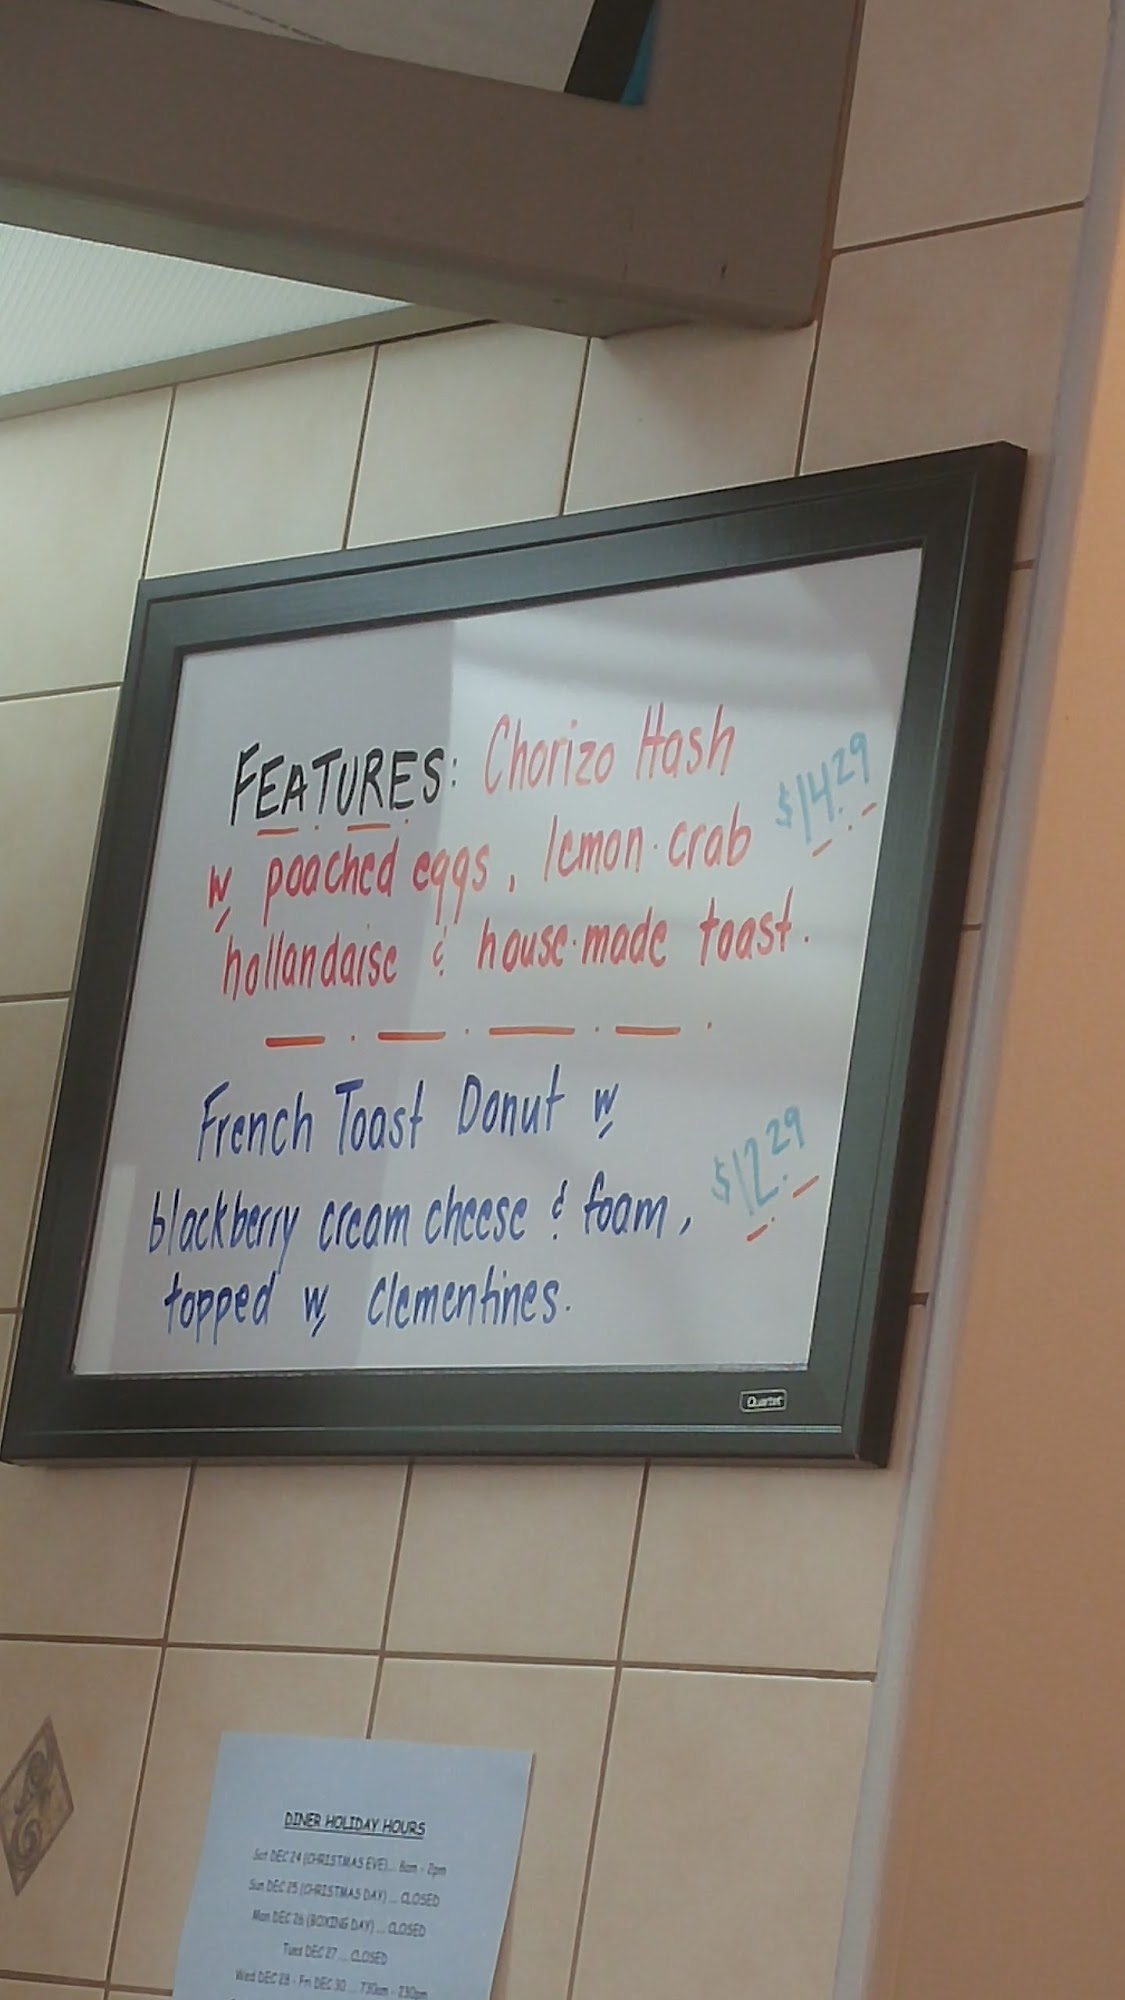 FEATURES: Chorizo Hash
$14.29
w/ poached eggs, lemon·crab
hollandaise & house·made toast.
French Toast Donut w/
$12.29
blackberry cream cheese & foam,
topped w/ clementines.
Quartet
DINER HOLIDAY HOURS
Sat DEC 24 (CHRISTMAS EVE)... 8am - 2pm
Sun DEC 25 (CHRISTMAS DAY) ... CLOSED
Mon DEC 26 (BOXING DAY) ... CLOSED
Tues DEC 27 ... CLOSED
Wed DEC 28 - Fri DEC 30 ... 730am - 230pm